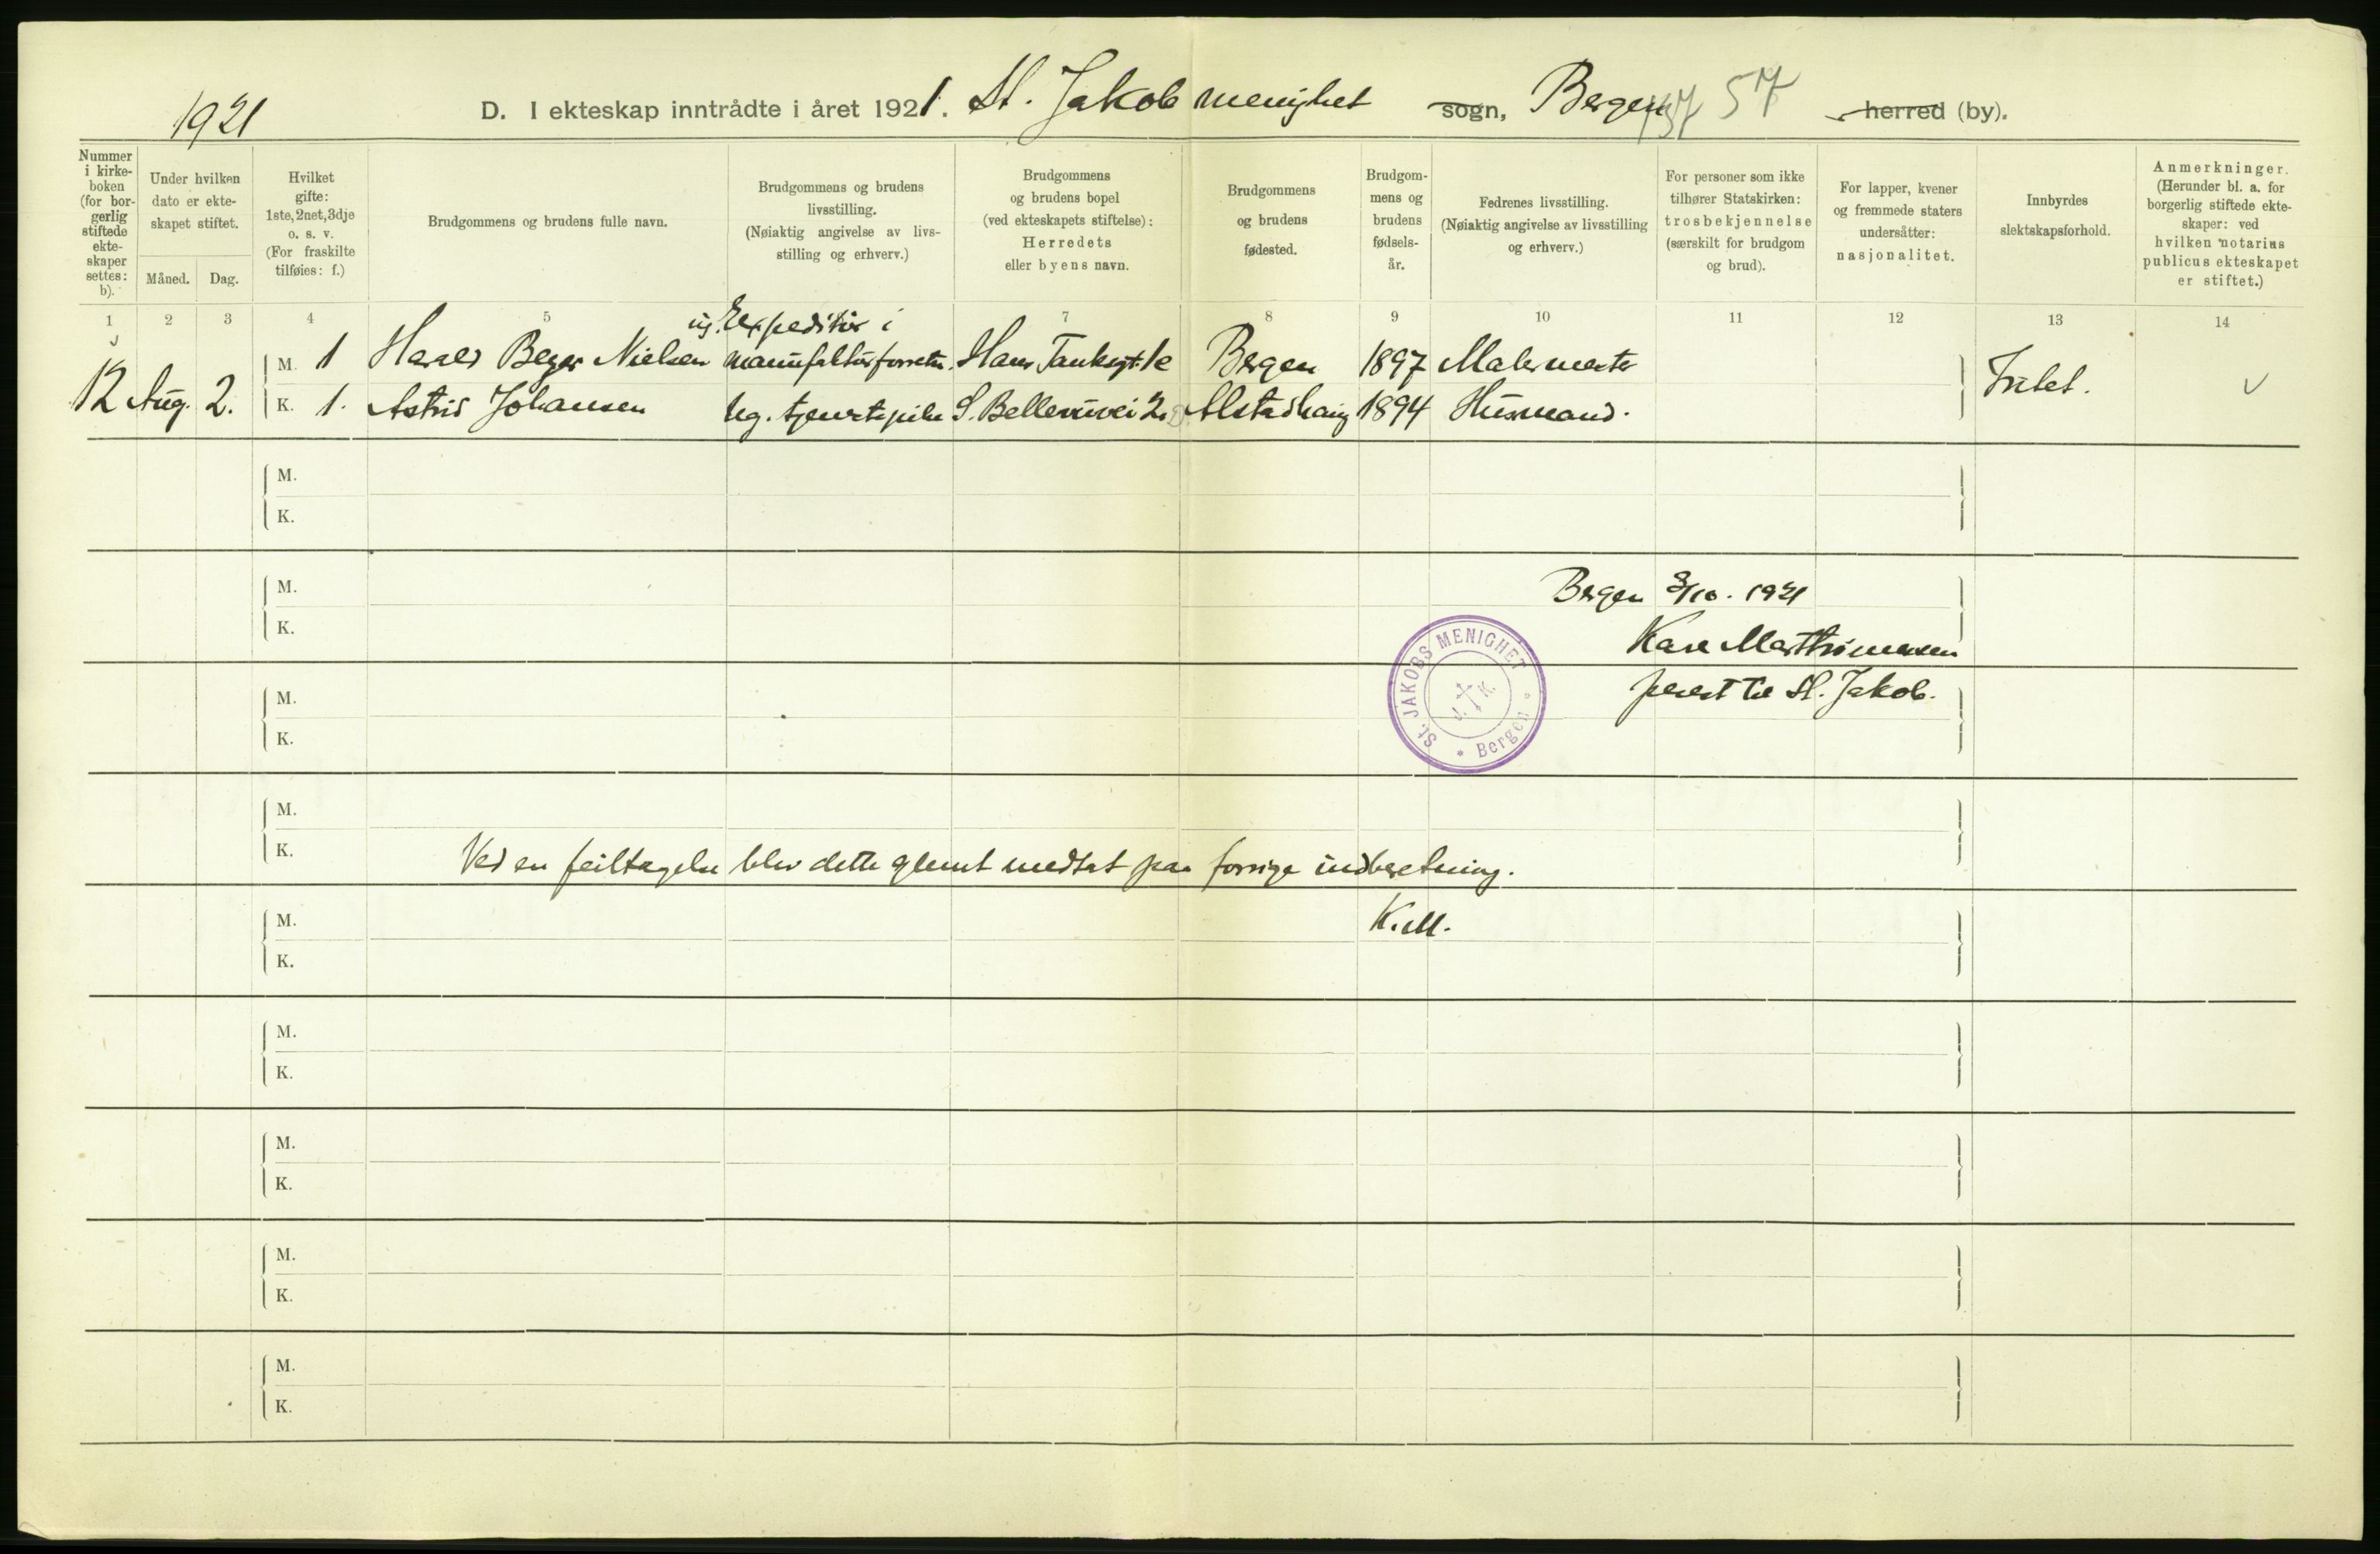 1921
D. I ekteskap inntrådte i året 1921. St. Jakob menighet sogn, Bergen 57 herred (by).
Nummer i kirkeboken (for borgerlig stiftede ekteskaper settes: b).
Under hvilken dato er ekteskapet stiftet.
Måned. Dag.
Hvilket gifte: 1ste, 2net, 3dje o. s. v. (For fraskilte tilføies: f.)
Brudgommens og brudens fulle navn.
Brudgommens og brudens livsstilling. (Nøiaktig angivelse av livsstilling og erhverv.)
Brudgommens og brudens bopel (ved ekteskapets stiftelse): Herredets eller byens navn.
Brudgommens og brudens fødested.
Brudgommens og brudens fødselsår.
Fedrenes livsstilling. (Nøiaktig angivelse av livsstilling og erhverv.)
For personer som ikke tilhører Statskirken: trosbekjennelse (særskilt for brudgom og brud).
For lapper, kvener og fremmede staters undersåtter: nasjonalitet.
Innbyrdes slektskapsforhold.
Anmerkninger. (Herunder bl. a. for borgerlig stiftede ekteskaper: ved hvilken notarius publicus ekteskapet er stiftet.)
1 2 3 4 5 6 7 8 9 10 11 12 13 14
ug. Expeditør i
M. 1 Harald Beyer Nielsen manufakturforretn. Hans Tanksgt. 1c Bergen 1897 Malermester
12 Aug. 2. K. 1. Astrid Johansen ug. tjenestepike S. Bellevuevei 2 Alstadhaug 1894 Husmand. Intet.
M.
K.
M.
K.
Bergen 3/10. 1921
Kare Marthinussen
prest til St. Jakob.
St. JAKOBS MENIGHET * Bergen *
J. K.
M.
K.
M.
K.
Ved en feiltagelse blev dette glemt medtat paa forrige indberetning.
K.M.
M.
K.
M.
K.
M.
K.
M.
K.
M.
K.